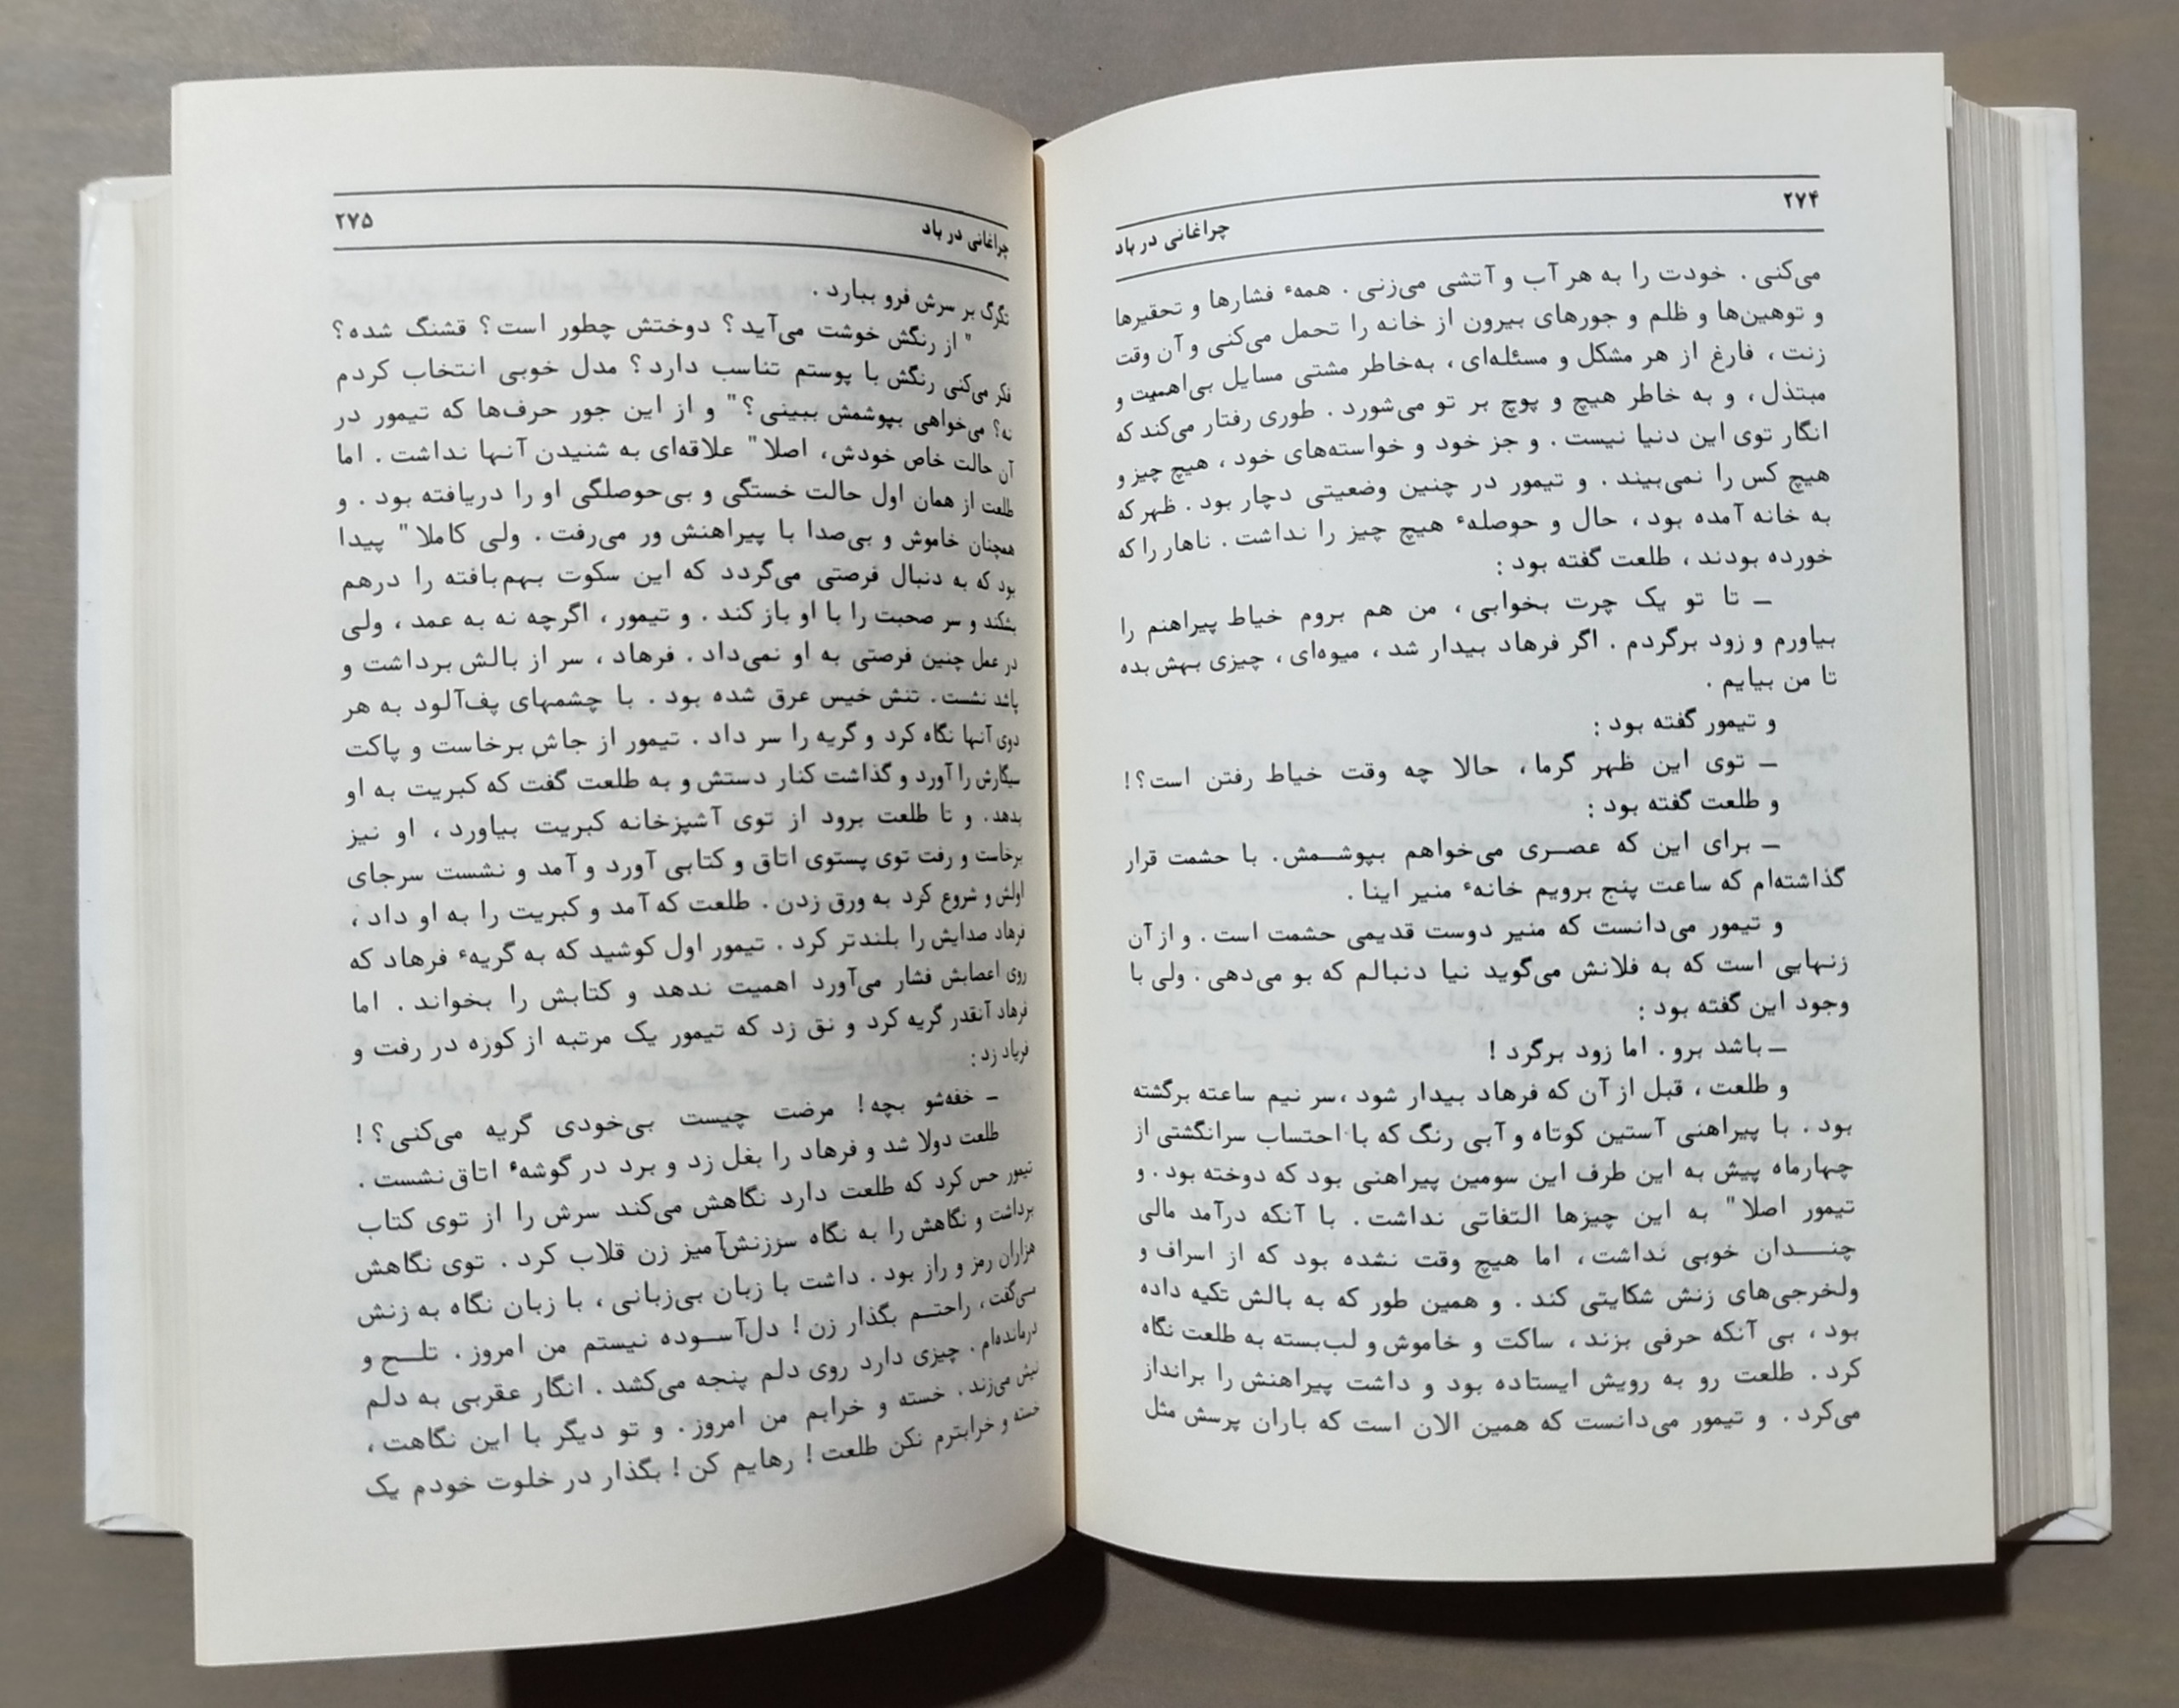 ۲۷۴
چراغانی در باد
می‌کنی . خودت را به هر آب و آتشی می‌زنی . همهٔ فشارها و تحقیرها
و توهین‌ها و ظلم و جورهای بیرون از خانه را تحمل می‌کنی و آن وقت
زنت ، فارغ از هر مشکل و مسئله‌ای ، به‌خاطر مشتی مسایل بی‌اهمیت و
مبتذل ، و به خاطر هیچ و پوچ بر تو می‌شورد . طوری رفتار می‌کند که
انگار توی این دنیا نیست . و جز خود و خواسته‌های خود ، هیچ چیز و
هیچ کس را نمی‌بیند . و تیمور در چنین وضعیتی دچار بود . ظهر که
به خانه آمده بود ، حال و حوصلهٔ هیچ چیز را نداشت . ناهار را که
خورده بودند ، طلعت گفته بود :
ــ تا تو یک چرت بخوابی ، من هم بروم خیاط پیراهنم را
بیاورم و زود برگردم . اگر فرهاد بیدار شد ، میوه‌ای ، چیزی بهش بده
تا من بیایم .
و تیمور گفته بود :
ــ توی این ظهر گرما، حالا چه وقت خیاط رفتن است؟!
و طلعت گفته بود :
ــ برای این که عصــری می‌خواهم بپوشــمش. با حشمت قرار
گذاشته‌ام که ساعت پنج برویم خانهٔ منیر اینا .
و تیمور می‌دانست که منیر دوست قدیمی حشمت است . و از آن
زنهایی است که به فلانش می‌گوید نیا دنبالم که بو می‌دهی . ولی با
وجود این گفته بود :
ــ باشد برو . اما زود برگرد !
و طلعت ، قبل از آن که فرهاد بیدار شود ،سر نیم ساعته برگشته
بود . با پیراهنی آستین کوتاه و آبی رنگ که با احتساب سرانگشتی از
چهارماه پیش به این طرف این سومین پیراهنی بود که دوخته بود . و
تیمور اصلا" به این چیزها التفاتی نداشت . با آنکه درآمد مالی
چنــدان خوبی نداشت، اما هیچ وقت نشده بود که از اسراف و
ولخرجی‌های زنش شکایتی کند . و همین طور که به بالش تکیه داده
بود ، بی آنکه حرفی بزند ، ساکت و خاموش و لب‌بسته به طلعت نگاه
کرد . طلعت رو به رویش ایستاده بود و داشت پیراهنش را برانداز
می‌کرد . و تیمور می‌دانست که همین الان است که باران پرسش مثل
چراغانی در باد
۲۷۵
تگرگ بر سرش فرو ببارد .
" از رنگش خوشت می‌آید ؟ دوختش چطور است؟ قشنگ شده؟
فکر می‌کنی رنگش با پوستم تناسب دارد؟ مدل خوبی انتخاب کردم
نه؟ می‌خواهی بپوشمش ببینی؟" و از این جور حرف‌ها که تیمور در
آن حالت خاص خودش، اصلا" علاقه‌ای به شنیدن آنها نداشت . اما
طلعت از همان اول حالت خستگی و بی‌حوصلگی او را دریافته بود . و
همچنان خاموش و بی‌صدا با پیراهنش ور می‌رفت . ولی کاملا" پیدا
بود که به دنبال فرصتی می‌گردد که این سکوت بهم‌بافته را درهم
بشکند و سر صحبت را با او باز کند . و تیمور ، اگرچه نه به عمد ، ولی
در عمل چنین فرصتی به او نمی‌داد . فرهاد ، سر از بالش برداشت و
پاشد نشست. تنش خیس عرق شده بود . با چشمهای پف‌آلود به هر
دوی آنها نگاه کرد و گریه را سر داد . تیمور از جاش برخاست و پاکت
سیگارش را آورد و گذاشت کنار دستش و به طلعت گفت که کبریت به او
بدهد. و تا طلعت برود از توی آشپزخانه کبریت بیاورد ، او نیز
برخاست و رفت توی پستوی اتاق و کتابی آورد و آمد و نشست سرجای
اولش و شروع کرد به ورق زدن . طلعت که آمد و کبریت را به او داد ،
فرهاد صدایش را بلندتر کرد . تیمور اول کوشید که به گریهٔ فرهاد که
روی اعصابش فشار می‌آورد اهمیت ندهد و کتابش را بخواند . اما
فرهاد آنقدر گریه کرد و نق زد که تیمور یک مرتبه از کوزه در رفت و
فریاد زد :
ــ خفه‌شو بچه! مرضت چیست بی‌خودی گریه می‌کنی؟!
طلعت دولا شد و فرهاد را بغل زد و برد در گوشهٔ اتاق نشست .
تیمور حس کرد که طلعت دارد نگاهش می‌کند سرش را از توی کتاب
برداشت و نگاهش را به نگاه سرزنش‌آمیز زن قلاب کرد . توی نگاهش
هزاران رمز و راز بود . داشت با زبان بی‌زبانی ، با زبان نگاه به زنش
می‌گفت ، راحتــم بگذار زن! دل‌آســوده نیستم من امروز . تلــخ و
درمانده‌ام . چیزی دارد روی دلم پنجه می‌کشد . انگار عقربی به دلم
نیش می‌زند . خسته و خرابم من امروز. و تو دیگر با این نگاهت ،
خسته و خرابترم نکن طلعت! رهایم کن! بگذار در خلوت خودم یک